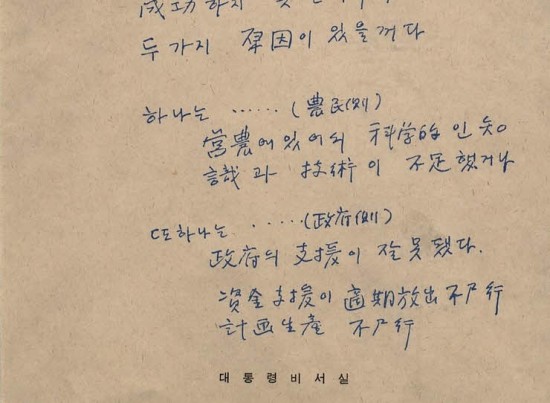 成功하지 못
두가지 原因이 있을꺼다
하나는 ......(農民側)
営農에있어의 科学的인 知
識과 技術이 不足했거나
또하나는 .....(政府側)
政府의 支援이 잘못됐다.
資金支援이 適期放出不尸行
計画生產 不尸行
대통령비서실